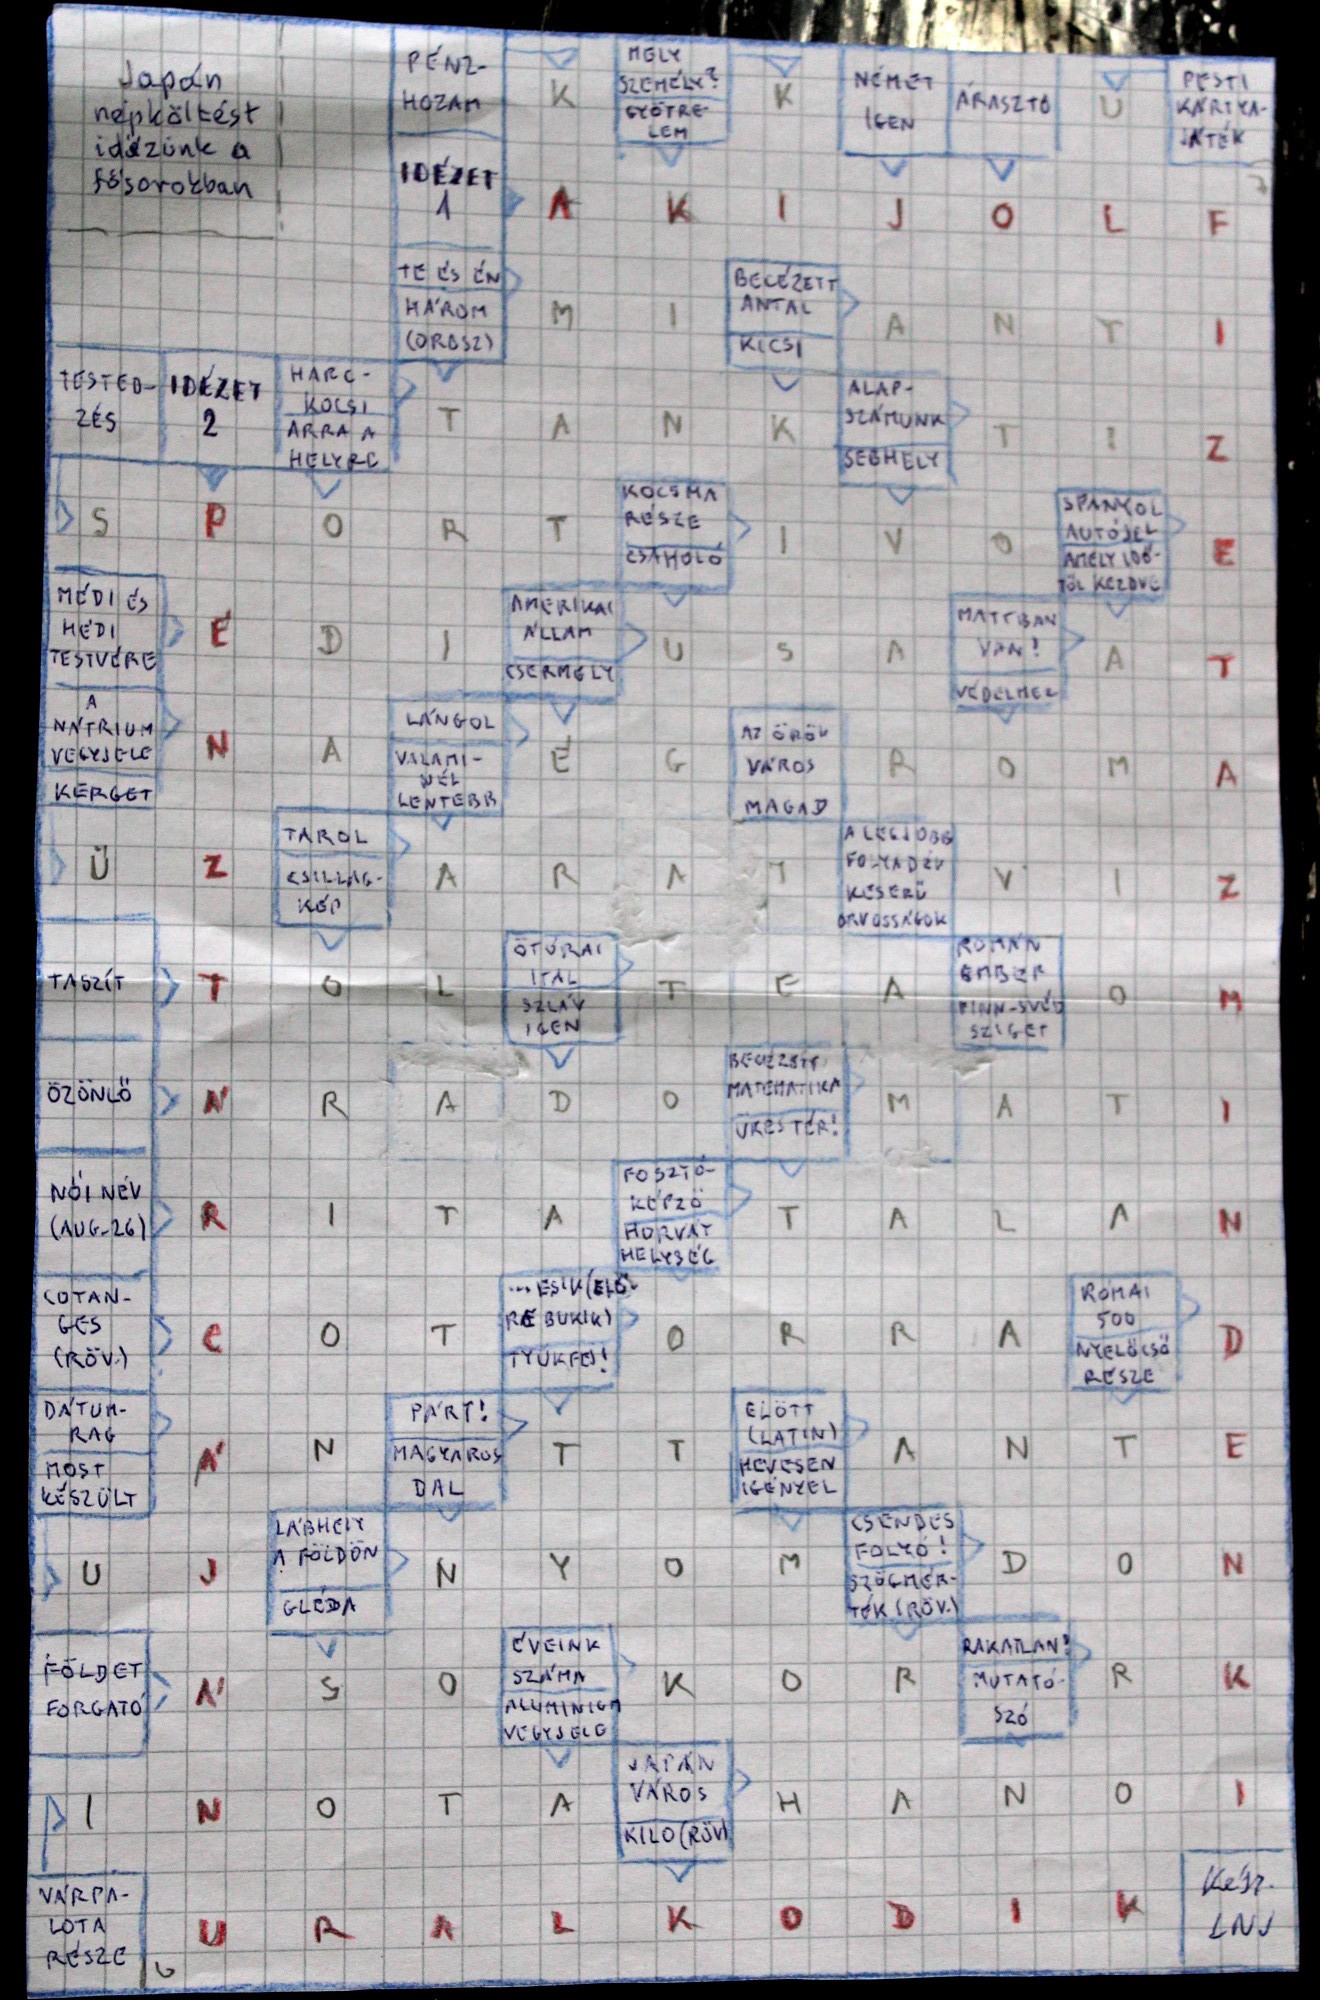 Japán
népköltést
idézünk a
fősorokban
PÉNZ-
HOZAM
K
MELY
SZEMÉLY?
GYÖTRE-
LEM
K
NÉMET
IGEN
ÁRASZTÓ
U
PESTI
KÁRTYA-
JÁTÉK
IDÉZET
1
A K I J O L F
TE ÉS ÉN
HÁROM
(OROSZ)
M I
BECÉZETT
ANTAL
KICSI
A N T I
TESTED-
ZÉS
IDÉZET
2
HARC-
KOCSI
ARRA A
HELYRE
T A N K
ALAP-
SZÁMUNK
SEBHELY
T I Z
S P O R T
KOCSMA
RÉSZE
CSAHOLÓ
I V O
SPANYOL
AUTÓJEL
AMELY IDŐ-
TŐL KEZDVE
E
MÉDI ÉS
HÉDI
TESTVÉRE
É D I
AMERIKAI
ÁLLAM
CSERMELY
U S A
MATTBAN
VAN!
VÉDELMEZ
A T
A
NÁTRIUM
VEGYJELE
KERGET
N A
LÁNGOL
VALAMI-
NÉL
LENTEBB
É G
AZ ÖRÖK
VÁROS
MAGAD
R O M A
Ü Z
TAROL
CSILLAG-
KÉP
A R A T
A LEGJOBB
FOLYADÉK
KESERŰ
ORVOSSÁGOK
V I Z
TASZÍT
T O L
ÖTÓRAI
ITAL
SZLÁV
IGEN
T E A
ROMÁN
EMBER
FINN-SVÉD
SZIGET
O M
ÖZÖNLŐ
Á R A D O
BECÉZETT
MATEMATIKA
ÜRES TÉR!
M A T I
NŐI NÉV
(AUG-26)
R I T A
FOSZTÓ-
KÉPZŐ
HORVÁT
HELYSÉG
T A L A N
COTAN-
GES
(RÖV.)
C O T
...ESIK(ELŐ-
RE BUKIK)
TYÚKFEJ!
O R R A
RÓMAI
500
NYELŐCSŐ
RÉSZE
D
DÁTUM-
RAG
MOST
KÉSZÜLT
Á N
PÁRT!
MAGYAROS
DAL
T T
ELŐTT
(LATIN)
HEVESEN
IGÉNYEL
A N T E
U J
LÁBHELY
A FÖLDÖN
GLÉDA
N Y O M
CSENDES
FOLYÓ!
SZÖGMÉR-
TÉK (RÖV.)
D O N
FÖLDET
FORGATÓ
Á S O
ÉVEINK
SZÁMA
ALUMINIUM
VEGYJELE
K O R
RAKATLAN!
MUTATÓ-
SZÓ
R K
I N O T A
JAPÁN
VÁROS
KILO(RÖV)
H A N O I
VÁRPA-
LOTA
RÉSZE
U R A L K O D I K
Kész.